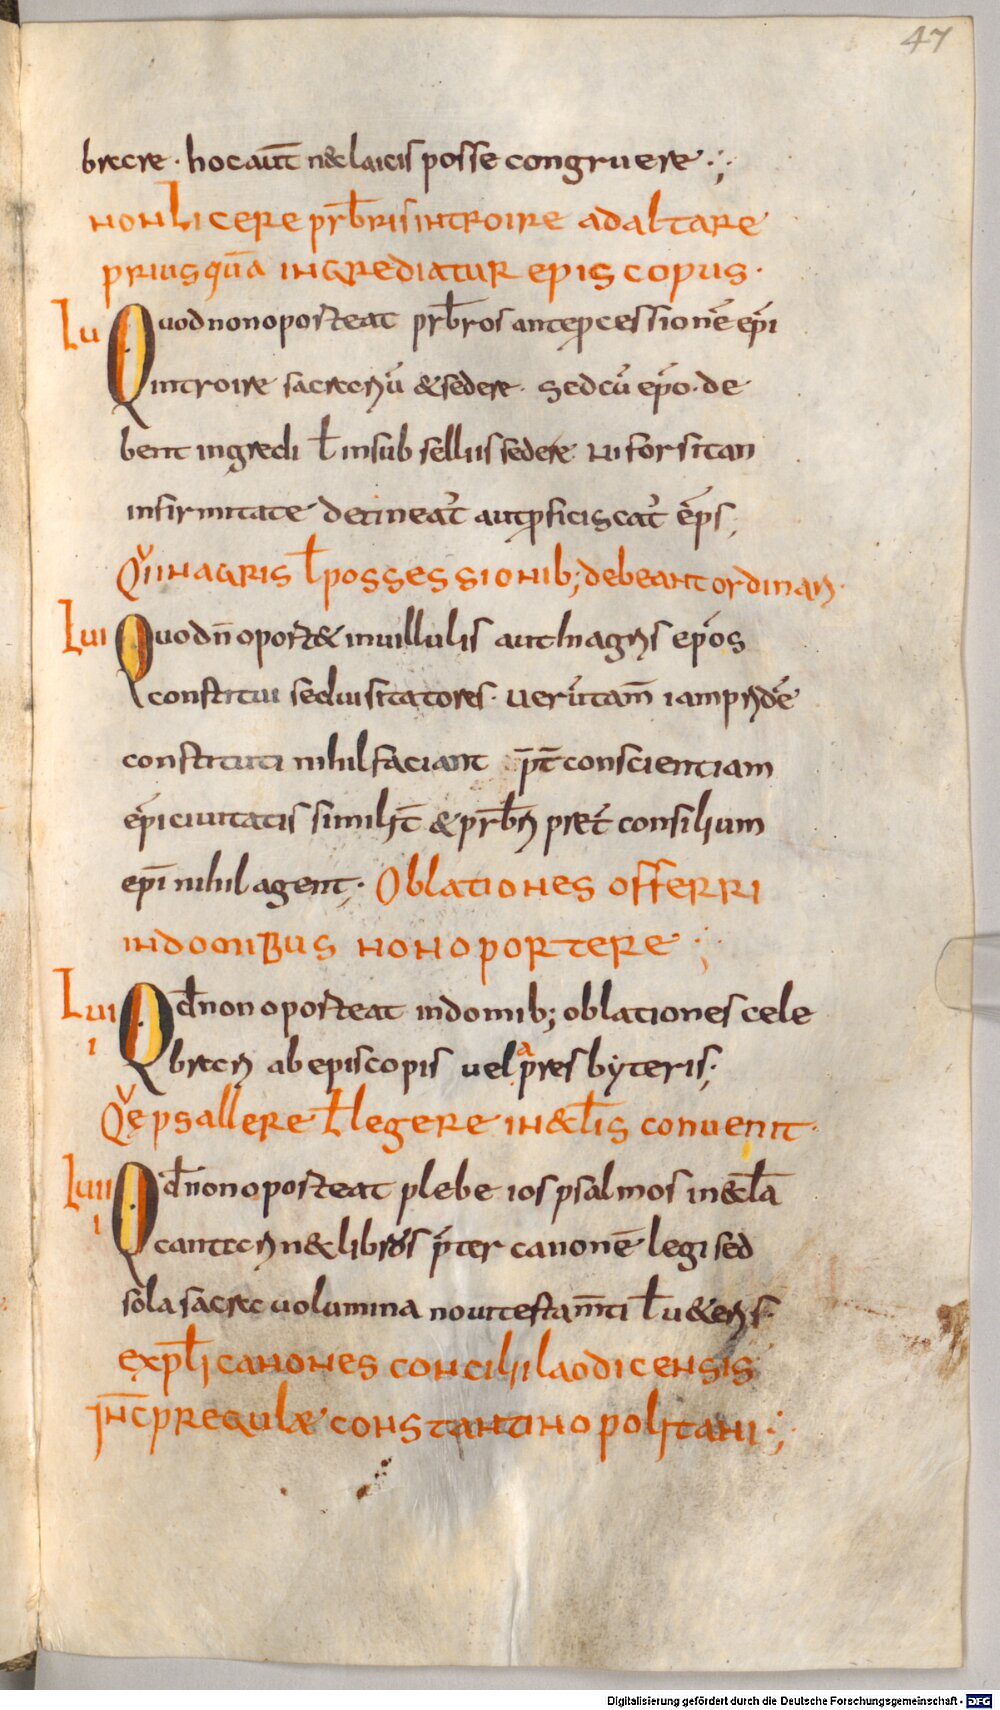 47
brare · hocaut̄ n&claicis posse congruere ·;
non licere prb̄ris introire ad altare
priusquā ingrediatur episcopus ·
Lu Quod non oporteat prb̄ros ante ꝓcessionē ep̄i
introire sacrariū & sedere · sed cū ep̄o · de
bent ingredi ł in sub selliis sedere · ni forsitan
infirmitate detineat̄ aut ꝓficiscat̄ ep̄s;
Qui in agris ł possessionib; debeant ordinari ·
Lui Quod n̄ oport& in uillulis aut in agris ep̄os
constitui sed uisitatores · uerūtam̄ iam pridē
constituti nihil faciant p̄t conscientiam
ep̄i ciuitatis similit̄ & prb̄ri pret̄ consilium
ep̄i nihil agent; Oblationes offerri
in domibus non oportere ;
Luii Qđ non oporteat in domib; oblationes cele
brari ab episcopis uel presbyteris;
Quę psallere ł legere in &cl̄is conuenit ·
Luiii Qđ non oporteat plebeios psalmos in &cl̄a
cantari n& libros p̄ter canonē legi sed
sola sacra uolumina noui testam̄ti ł u&eris ·
expł canones concilii laodicensis
Inc̄p regulæ constantinopolitani ·;
Digitalisierung gefördert durch die Deutsche Forschungsgemeinschaft - DFG